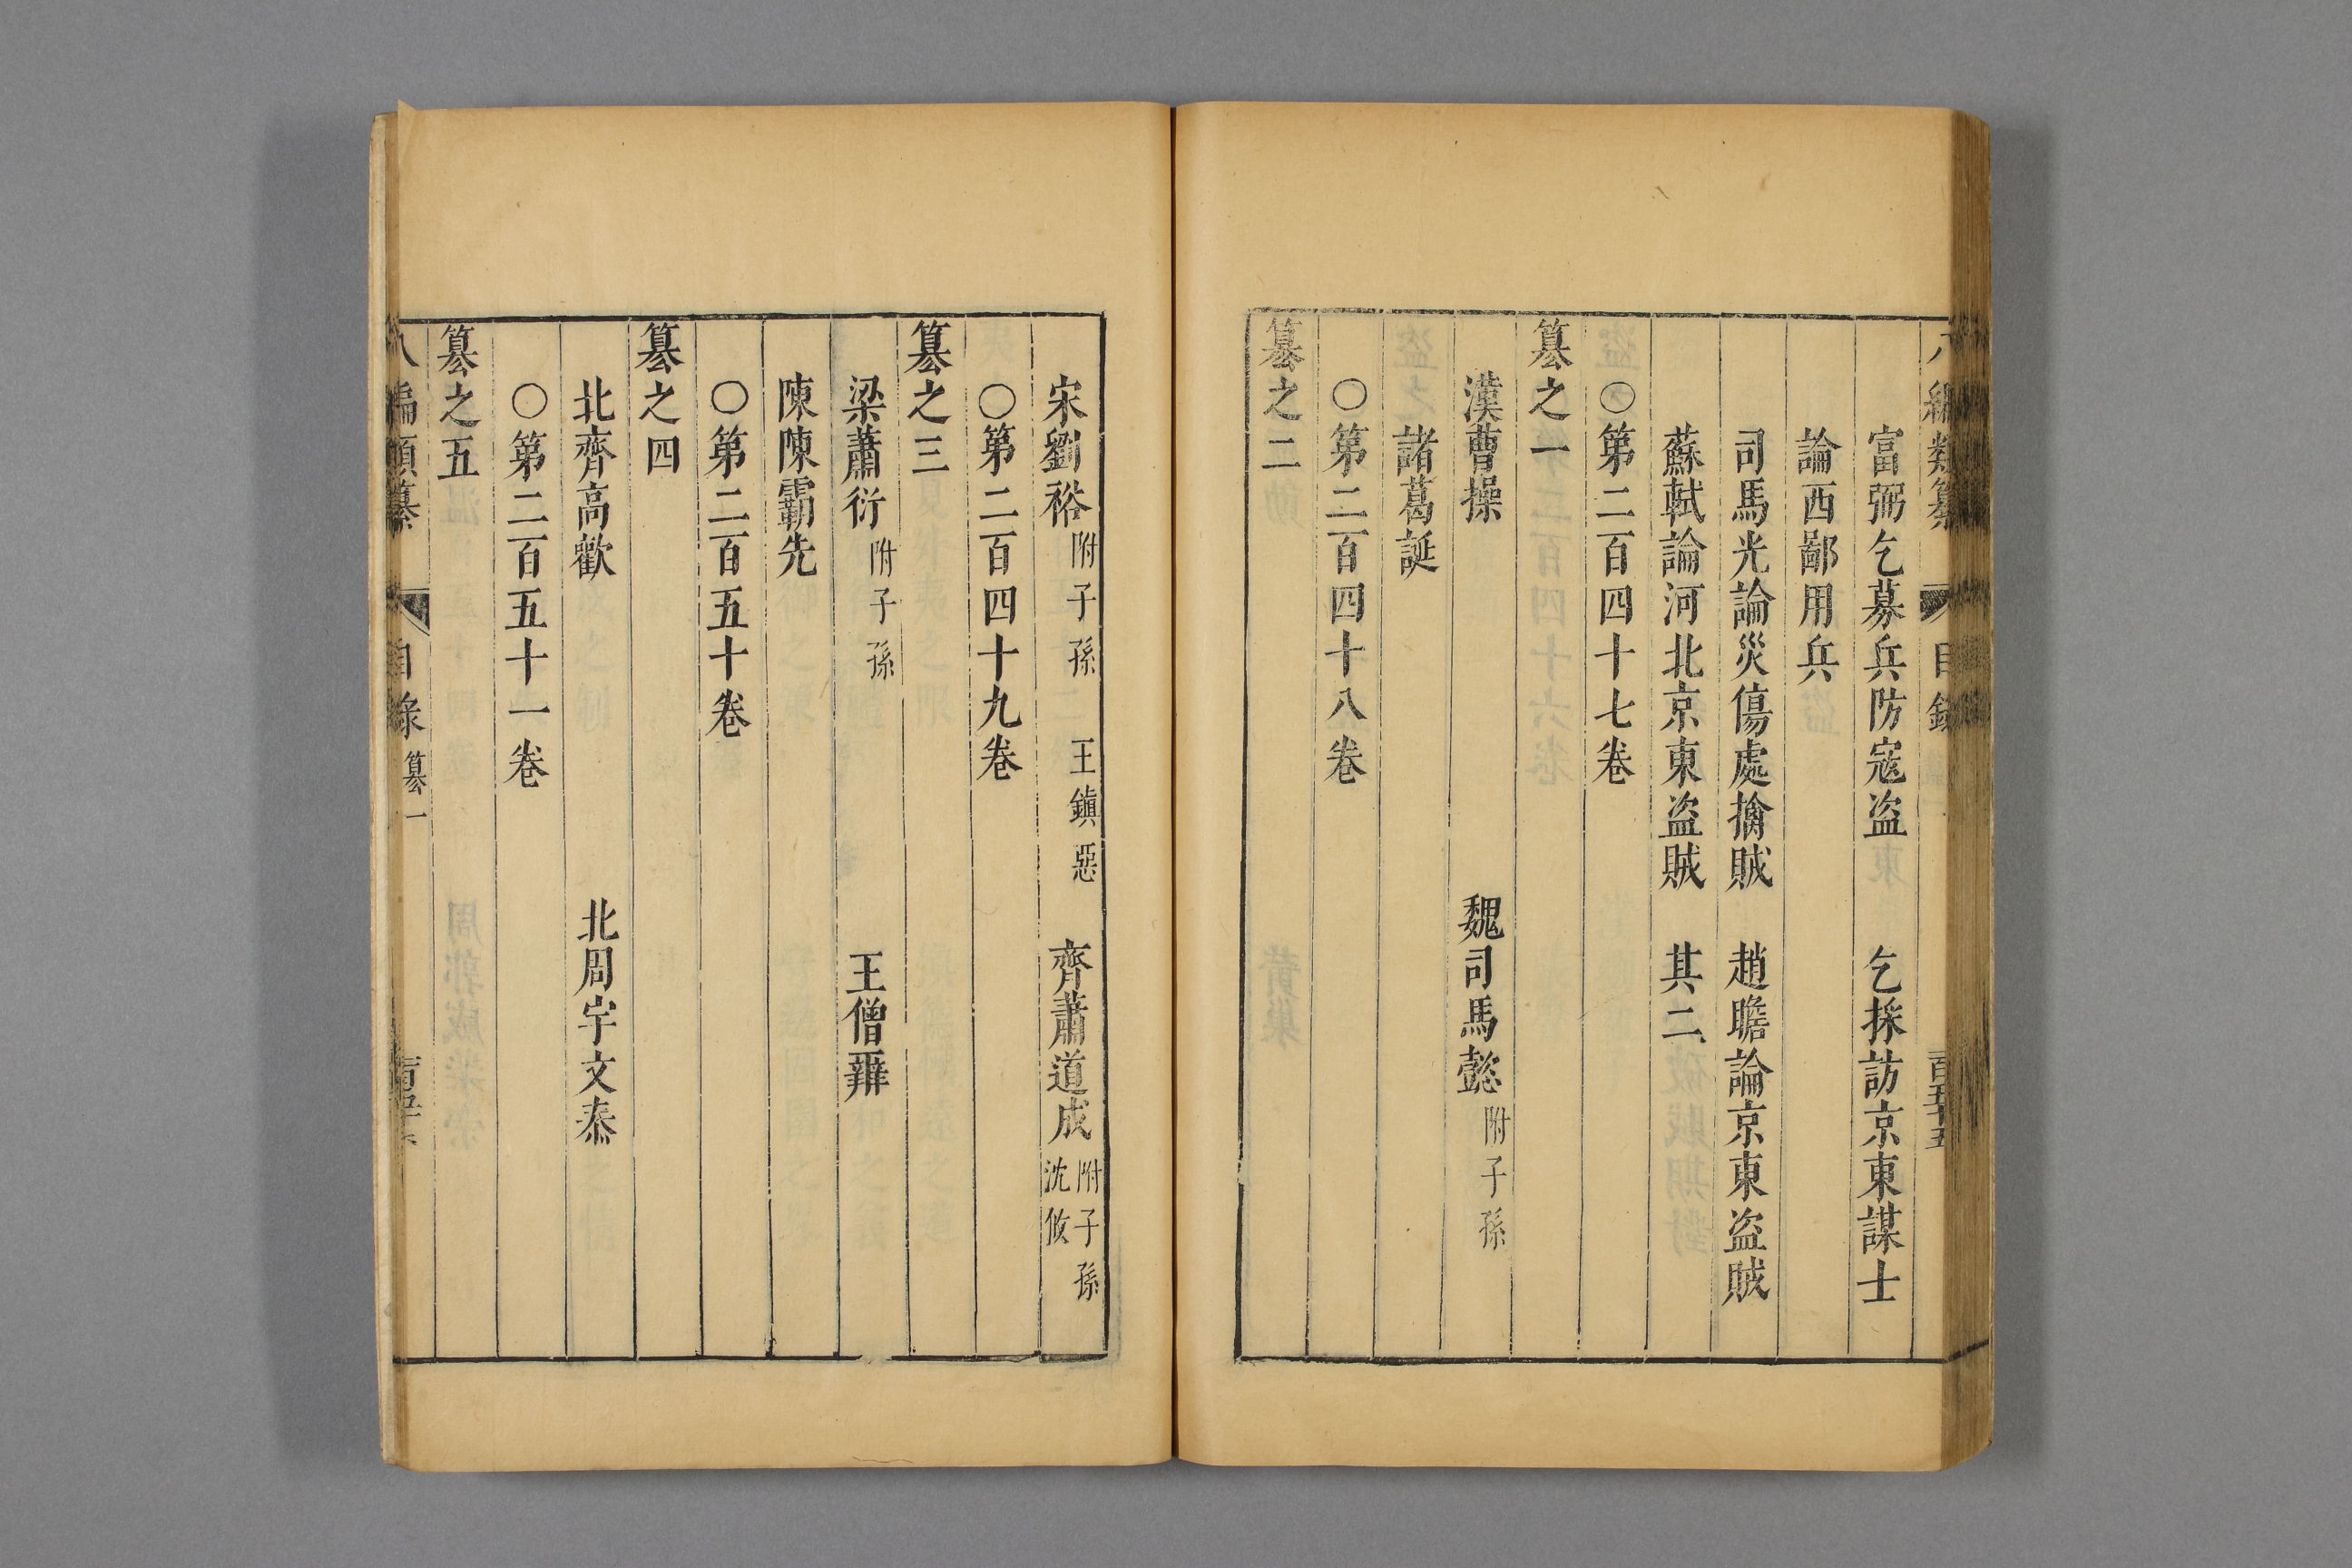 八編類纂 目錄 百五十五
富弼乞募兵防寇盜 乞採訪京東謀士
論西鄙用兵
司馬光論災傷處擒賊 趙瞻論京東盜賊
蘇軾論河北京東盜賊 其二
○第二百四十七卷
篡之一
漢曹操 魏司馬懿附子孫
諸葛誕
○第二百四十八卷
篡之二
宋劉裕附子孫 王鎮惡 齊蕭道成附子孫沈攸
○第二百四十九卷
篡之三
梁蕭衍附子孫 王僧辯
陳陳霸先
○第二百五十卷
篡之四
北齊高歡 北周宇文泰
○第二百五十一卷
篡之五
八編類纂 目錄 篡一